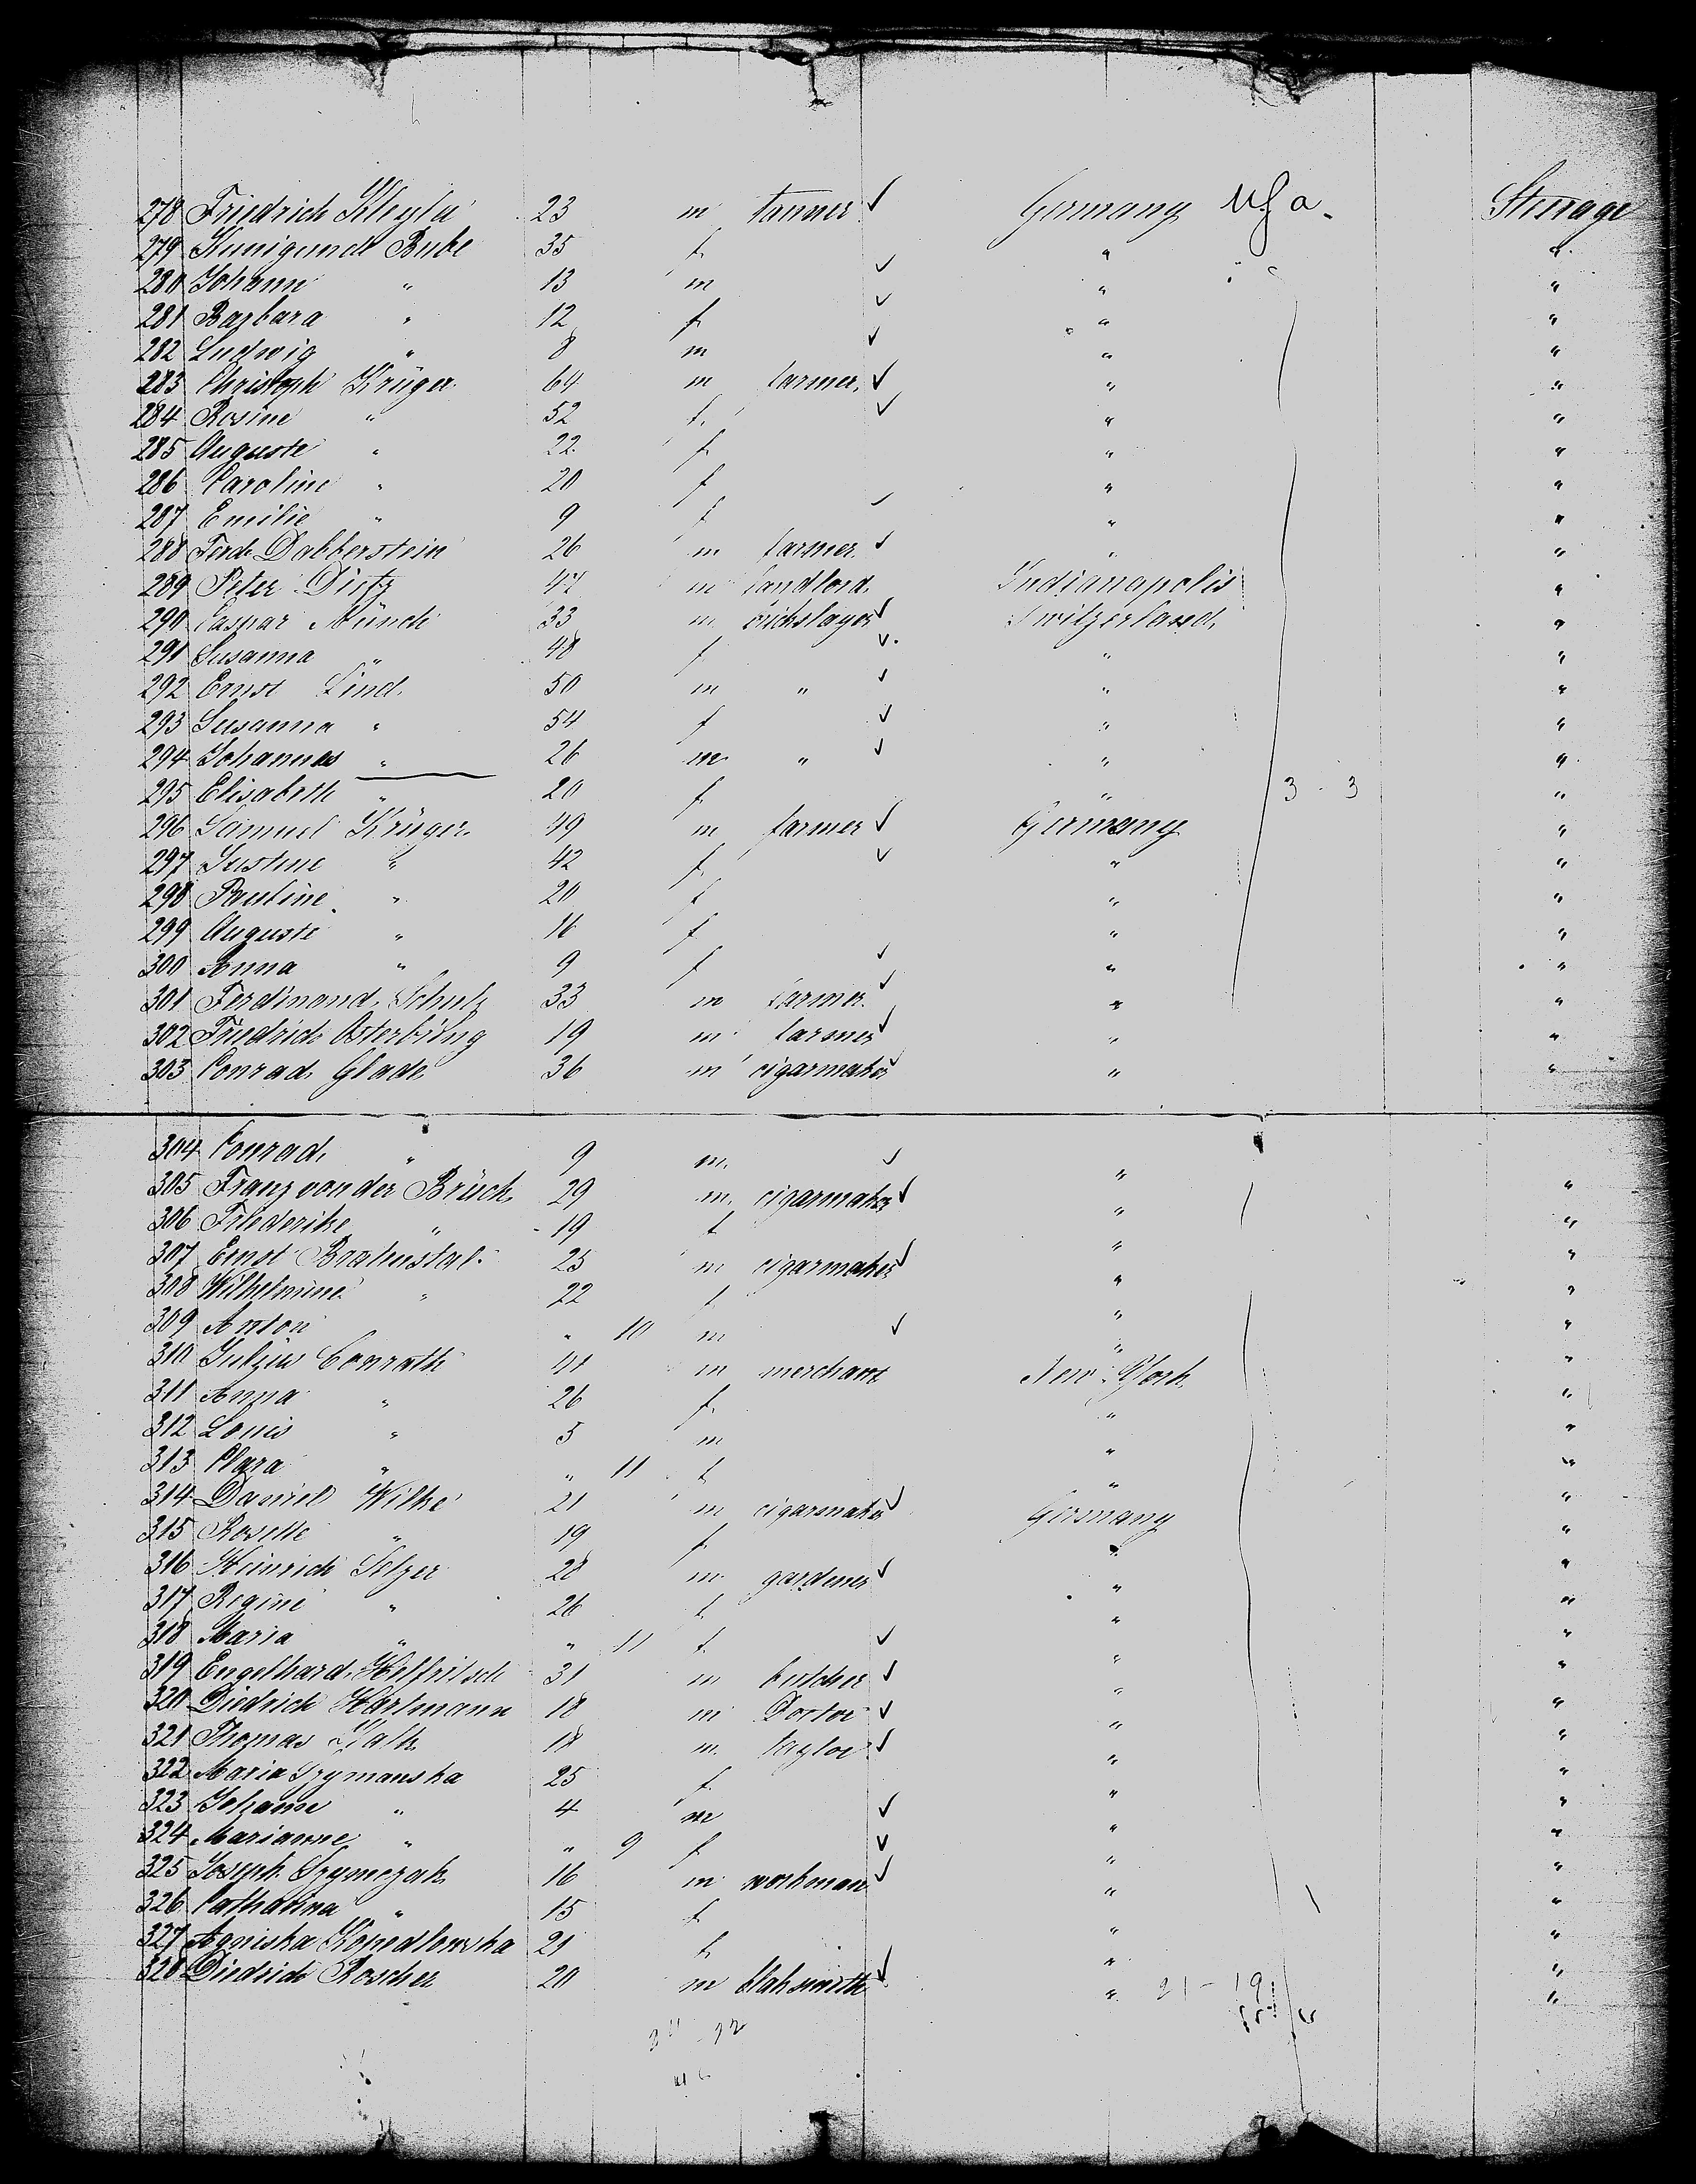 278 Friedrich Kleyla 23 m tanner ✓ Germany USa. Steerage
279 Kunigunde Bube 35 f " "
280 Johann " 13 m ✓ " "
281 Barbara " 12 f ✓ " "
282 Ludwig " 8 m ✓ " "
283 Christoph Krüger 64 m farmer ✓ " "
284 Rosine " 52 f ✓ " "
285 Auguste " 22 f " "
286 Caroline " 20 f " "
287 Emilie " 9 f ✓ " "
288 Ferd. Dabberstein 26 m farmer ✓ " "
289 Peter Dietz 47 m landlord Indianapolis "
290 Caspar Münch 33 m brickslayer ✓ Switzerland "
291 Susanna " 48 f ✓ " "
292 Ernst Lind 50 m " ✓ " "
293 Susanna " 54 f ✓ " "
294 Johannes " 26 m " ✓ " "
295 Elisabeth " 20 f " 3 - 3 "
296 Samuel Krüger 49 m farmer ✓ Germany "
297 Justine " 42 f ✓ " "
298 Pauline " 20 f " "
299 Auguste " 16 f " "
300 Anna " 9 f ✓ " "
301 Ferdinand Schulz 33 m farmer ✓ " "
302 Friedrich 19 m farmer ✓ " "
303 Conrad Glade 36 m cigarmaker ✓ " "
304 Conrad " 9 m ✓ " "
305 Franz von der Brück 29 m cigarmaker ✓ " "
306 Friederike " 19 f " "
307 Ernst 25 m cigarmaker ✓ " "
308 Wilhelmine " 22 f " "
309 Anton " 10 m ✓ " "
310 Conrath 41 m merchant New York "
311 Anna " 26 f " "
312 Louis " 5 m " "
313 Clara " " 11 f " "
314 Daniel Wilke 21 m cigarmaker ✓ Germany "
315 Rosette " 19 f " "
316 Heinrich Selzer 28 m gardener ✓ " "
317 Regine " 26 f " "
318 Maria " " 11 f ✓ " "
319 Engelhard Helfritsch 31 m butcher ✓ " "
320 Diedrich Hartmann 18 m Doctor ✓ " "
321 Thomas 18 m taylor ✓ " "
322 Maria Szymanska 25 f " "
323 Johann " 4 m ✓ " "
324 Marianne " " 9 f ✓ " "
325 Joseph Szymczak 16 m workman ✓ " "
326 Catharina " 15 f " "
327 Agniska Kopedlowska 21 f " "
328 Diedrich Roscher 20 m blaksmith ✓ " 21 - 19 "